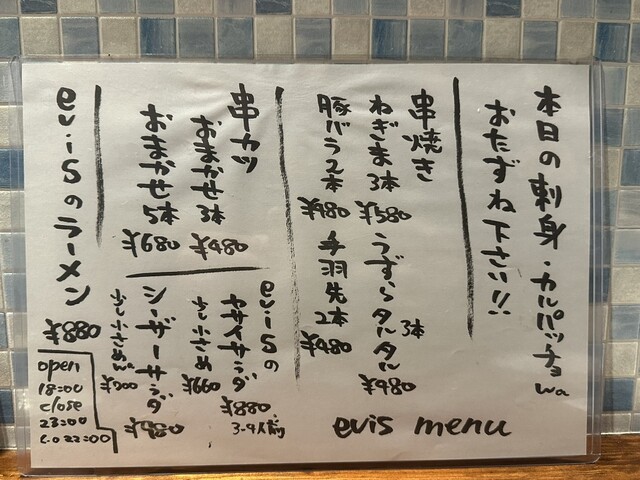 本日の刺身・カルパッチョwa
おたずね下さい!!
串焼き
ねぎま 3本 ¥580
うずらタルタル 3本 ¥980
豚バラ2本 ¥480
手羽先 2本 ¥480
串カツ
おまかせ 3本 ¥480
おまかせ 5本 ¥680
evisの
ヤサイサラダ ¥880
3-4人前
少し小さめ ¥660
シーザーサラダ ¥980
少し小さめ ¥700
evisのラーメン ¥880
open
18:00
close
23:00
L.O 22:00
evis menu